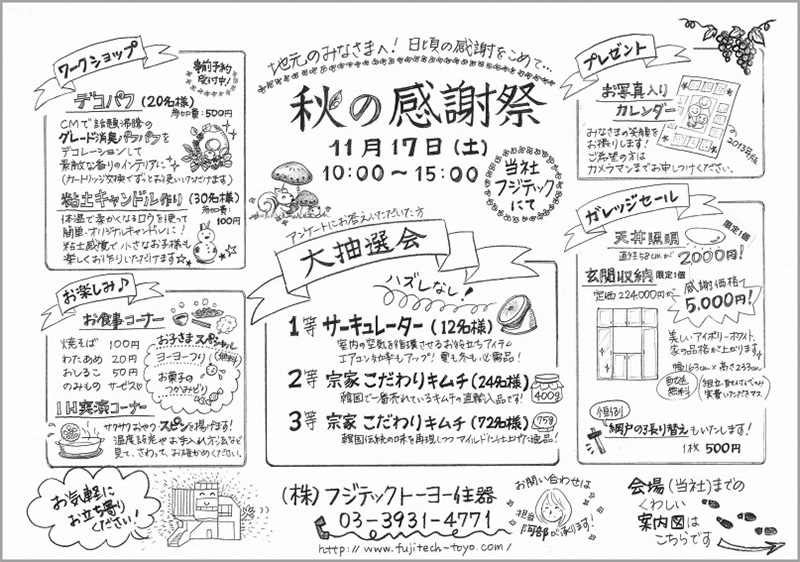 地元のみなさまへ！日頃の感謝をこめて…
秋の感謝祭
11月17日(土)
10:00～15:00
当社
フジテック
にて
ワークショップ
事前予約
受付中！
デコパフ(20名様)
参加費:500円
CMで話題沸騰の
グレード消臭パラパフを
デコレーションして
素敵な香りのインテリアに
(カートリッジ交換でずっとお使いいただけます)
粘土キャンドル作り(30名様)
参加費:
100円
体温で柔かくなるロウを使って
簡単・オリジナルキャンドルに！
粘土感覚で小さなお子様も
楽しくお作りいただけます☆
お楽しみ♪
お食事コーナー
焼そば 100円
わたあめ 20円
おしるこ 50円
のみもの サービス
お子さまスペシャル
ヨーヨーつり(無料)
お菓子の
つかみどり
IH実演コーナー
サクサクおやつスピンを揚げます！
温度設定やお手入れ方法など
見て、さわって、お確かめください。
お気軽に
お立ち寄り
ください！
アンケートにお答えいただいた方
大抽選会
ハズレなし！
1等 サーキュレーター(12名様)
室内の空気を循環させるお役立ちアイテム
エアコン効率もアップ！夏も冬も必需品！
2等 宗家こだわりキムチ(24名様)
韓国で一番売れているキムチの直輸入品です！
400g
3等 宗家こだわりキムチ(72名様)
韓国伝統の味を再現しつつマイルドに仕上げた逸品！
75g
(株)フジテックトーヨー住器
03-3931-4771
http://www.fujitech-toyo.com/
お問い合わせは
担当
阿部が承ります！
プレゼント
お写真入り
カレンダー
みなさまの笑顔を
お撮りします！
ご希望の方は
カメラマンまでお申しつけください。
2013年版
ガレッジセール
天井照明
限定1個
直径58cmが
2,000円！
玄関収納 限定1個
定価224,000円が
感謝価格で
5,000円！
美しいアイボリーホワイト。
家の品格が上がります。
幅163cm×高さ233cm
配送
無料
組立・取付けのみ
実費いただきます
恒例
網戸の張り替えもいたします！
1枚 500円
会場(当社)までの
くわしい
案内図は
こちらです